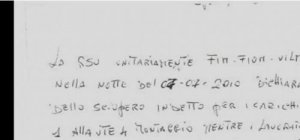 LA RSU UNITARIAMENTE FIM-FIOM-UILM
NELLA NOTTE DEL 07-07-2010 DICHIARA
DELLO SCIOPERO INDETTO PER I CARICHI
MONTAGGIO MENTRE I LAVORATO